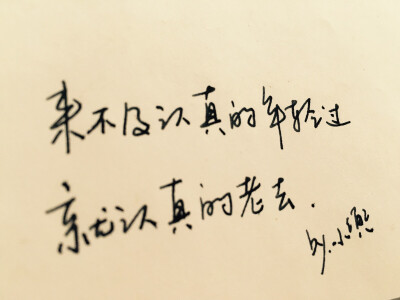 来不及认真的年轻过
就认真的老去.
by.小